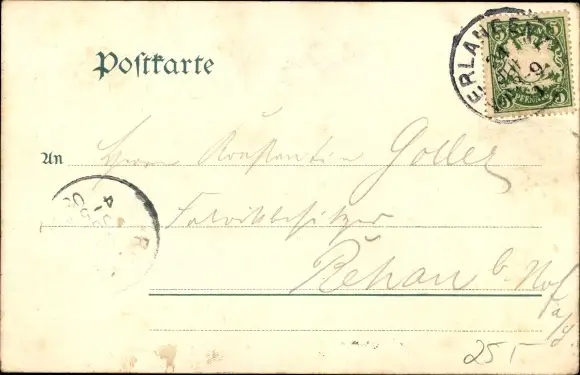 Postkarte
ERLANGEN
5 5
PFENNIG
5 5
An Herrn Konstantin Goller
Fabrikbesitzer
Rehau b. Hof
a/S.
R
25 5